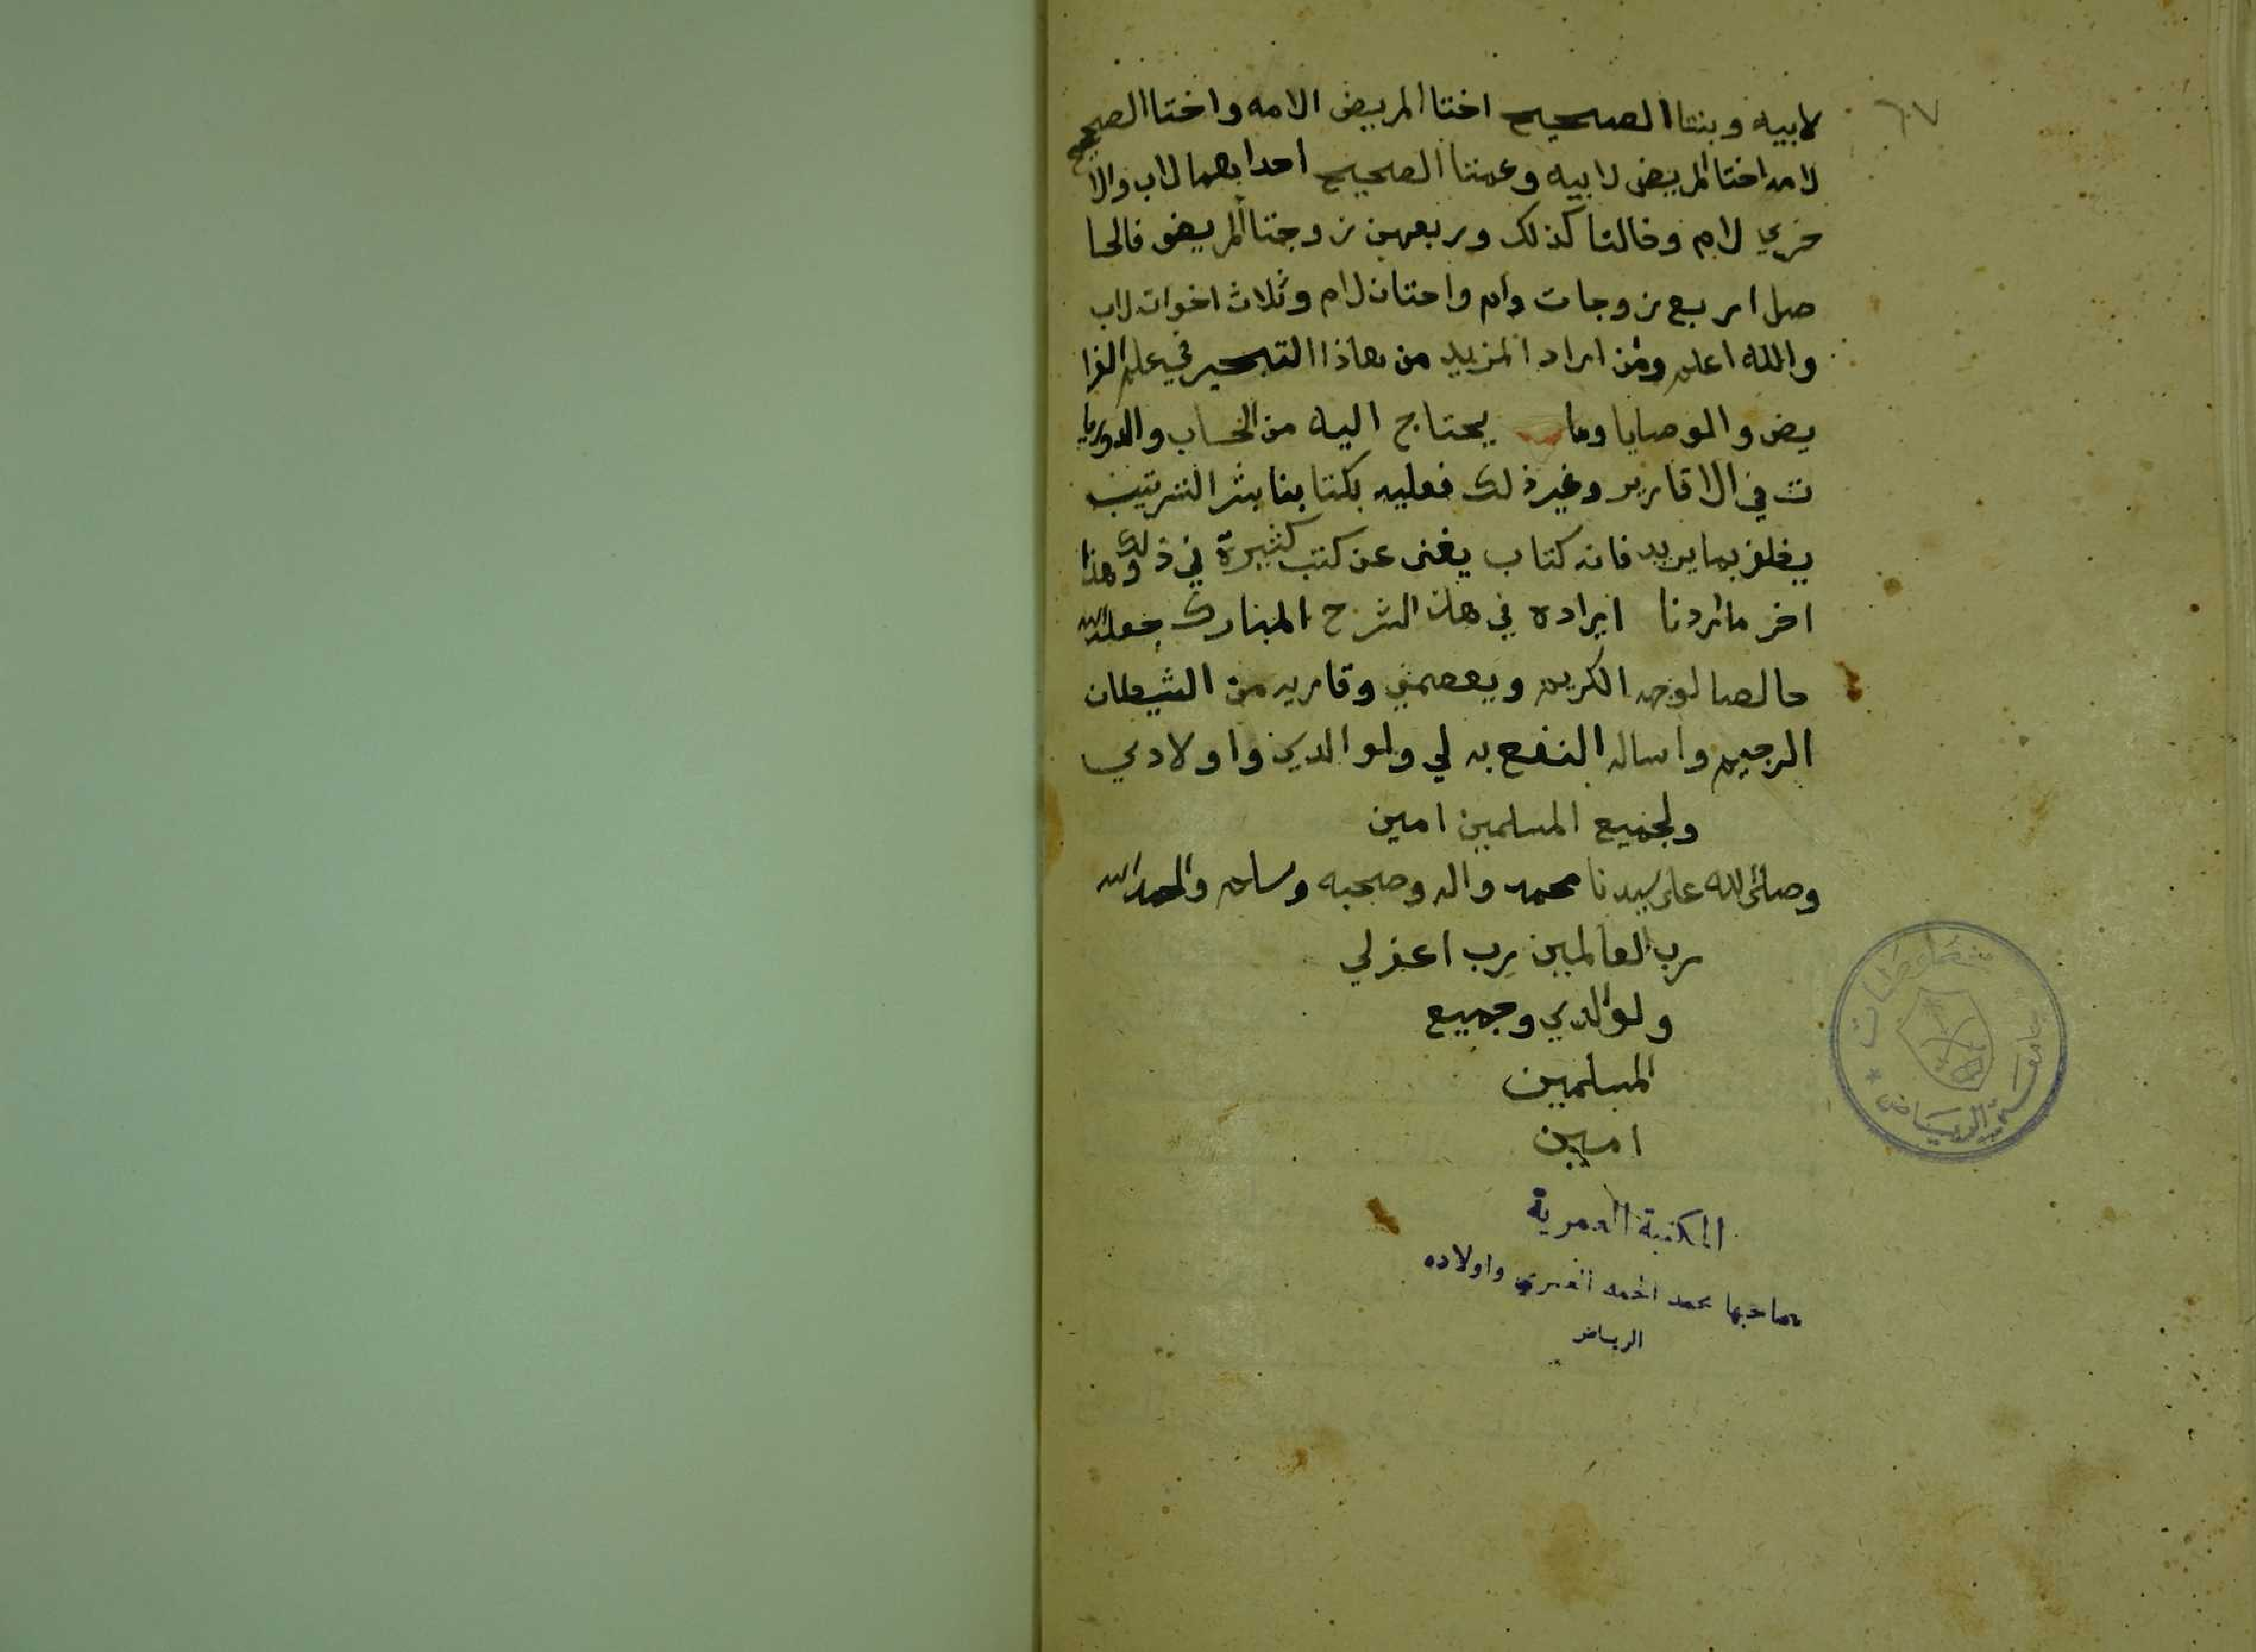 ٦٧
لابيه وبنتا الصحيح اختا المريض الامه واختا الصحيح
لامه اختا المريض لابيه وعمتا الصحيح احدابهما لاب والا
خري لام وخالتا كذلك وربعهن زوجتا المريض فالحا
صل اربع زوجات وام واختان لام وثلاث اخوات لاب
والله اعلم ومن اراد المزيد من هاذا التبحير في علم الفرا
يض والوصايا وما يحتاج اليه من الحساب والدوريا
ت في الاقارير وغير ذلك فعليه بكتابنا بشر الترتيب
يظفر بما يريد فانه كتاب يغنى عن كتب كثيرة في ذلك وهذا
اخر ما اردنا ايراده في هذا الشرح المبارك جعله الله
خالصا لوجهه الكريم ويعصمني وقاريه من الشيطان
الرجيم واساله النفع به لي ولوالدين واولادي
ولجميع المسلمين امين
وصلى الله على سيدنا محمد واله وصحبه وسلم والحمد لله
رب العالمين رب اغفر لي
ولوالدي وجميع
المسلمين
امين
المكتبة العمرية
صاحبها محمد احمد العمري واولاده
الرياض
جامعة الرياض
مخطوطات